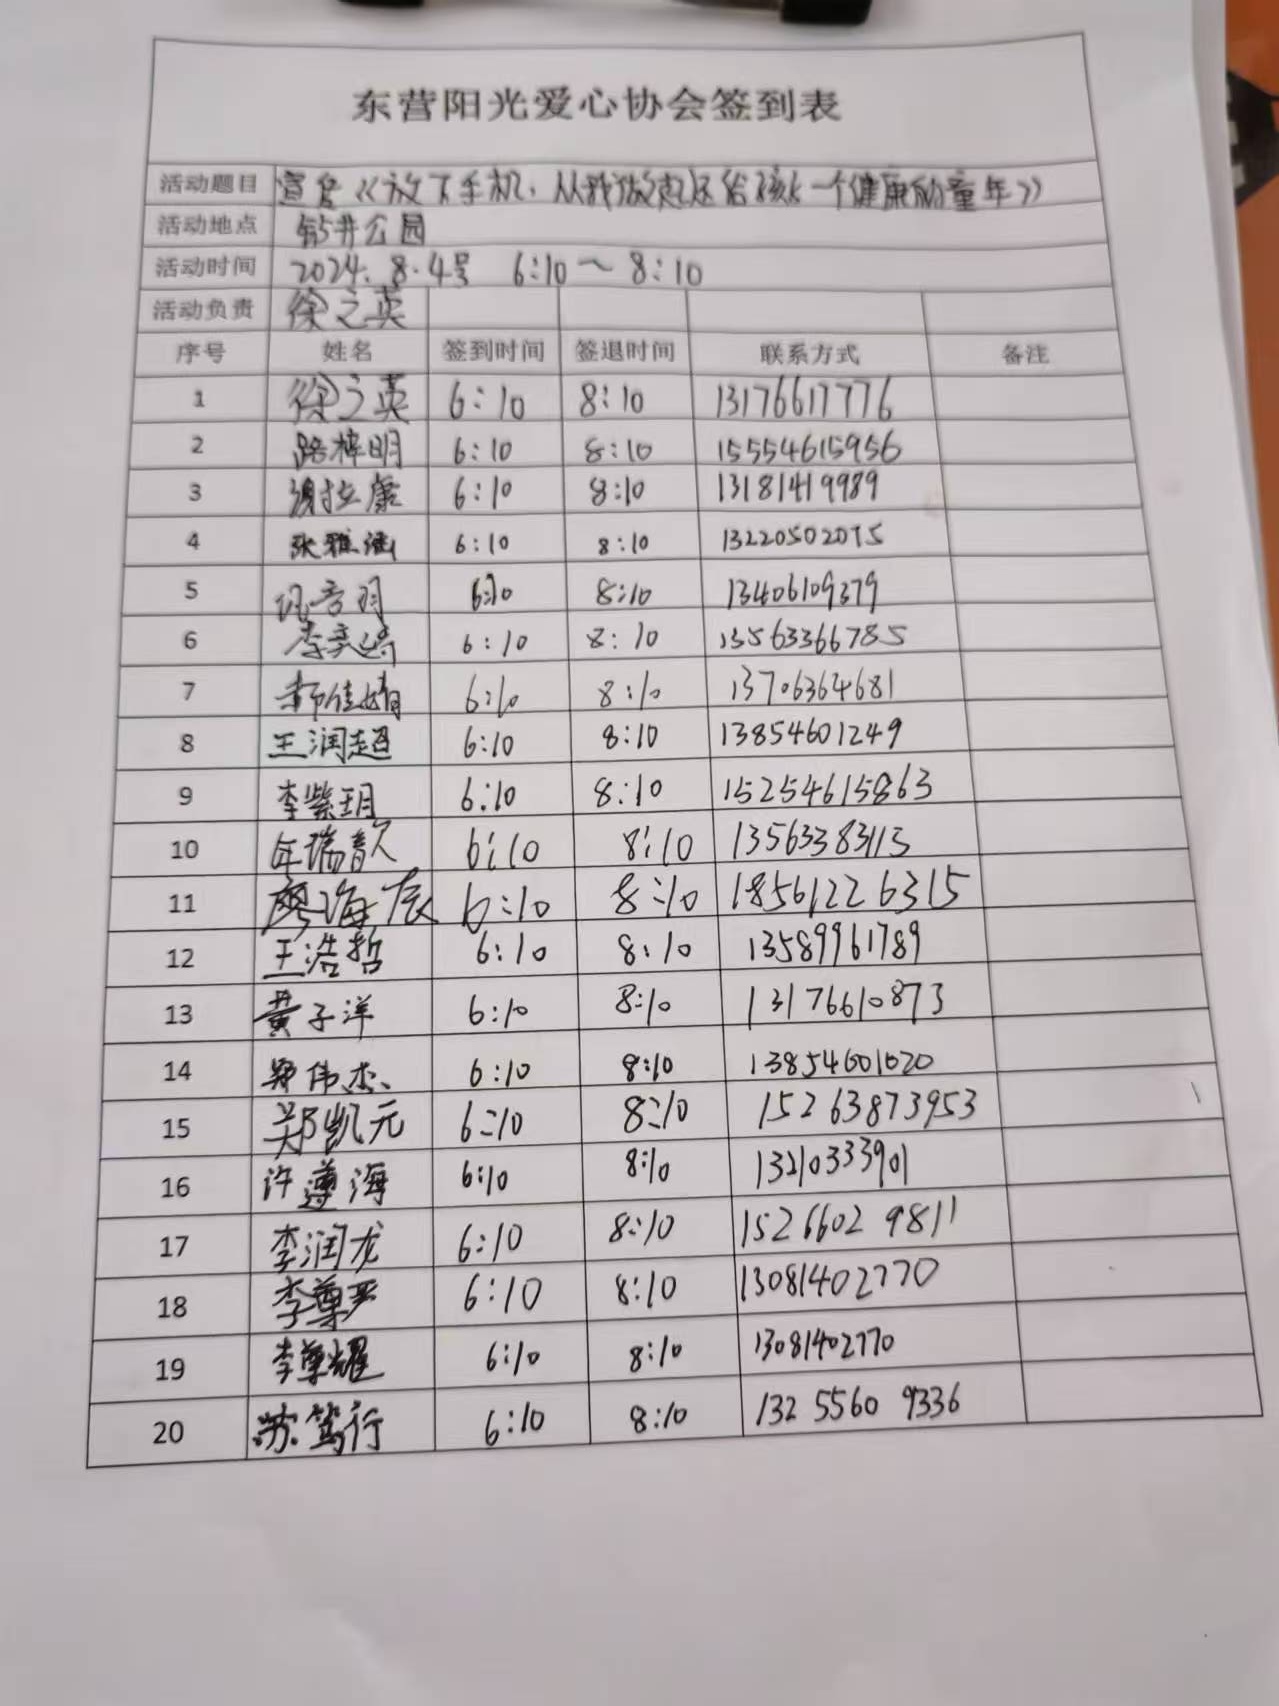 东营阳光爱心协会签到表
活动题目 宣传《放下手机、从我做起还给孩子一个健康的童年》
活动地点 钻井公园
活动时间 2024.8.4号 6:10～8:10
活动负责 徐之英
序号 姓名 签到时间 签退时间 联系方式 备注
1 徐之英 6:10 8:10 13176617776
2 路梓明 6:10 8:10 15554615956
3 6:10 8:10 13181419989
4 张雅涵 6:10 8:10 13220502075
5 6:10 8:10 13406109379
6 李奕 6:10 8:10 13563366785
7 佳婧 6:10 8:10 13706364681
8 王润超 6:10 8:10 13854601249
9 李紫玥 6:10 8:10 15254615863
10 年瑞歆 6:10 8:10 13563383113
11 廖海辰 6:10 8:10 18561226315
12 王浩哲 6:10 8:10 13589961789
13 黄子洋 6:10 8:10 13176610873
14 郑伟杰 6:10 8:10 13854601020
15 郑凯元 6:10 8:10 15263873953
16 许遵海 6:10 8:10 13210333901
17 李润龙 6:10 8:10 15266029811
18 李尊严 6:10 8:10 13081402770
19 李尊耀 6:10 8:10 13081402770
20 苏笃行 6:10 8:10 132 5560 9336